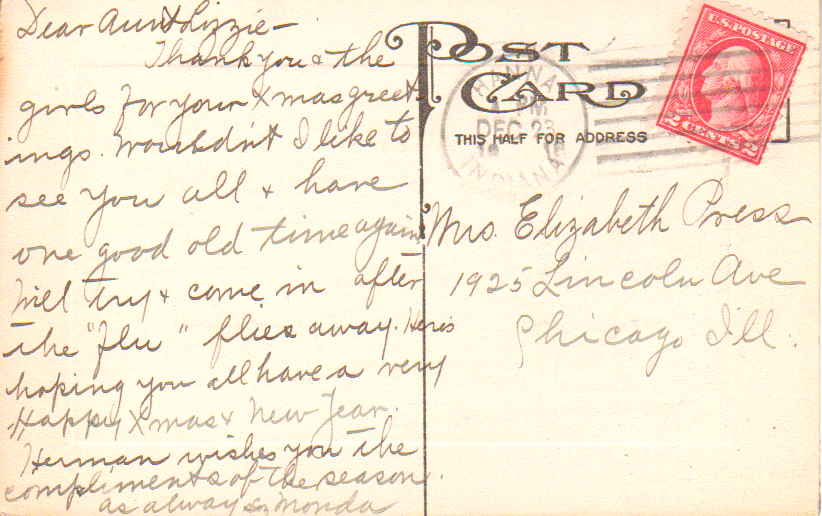 Dear Aunt Lizzie -
Thank you & the
girls for your Xmas greet
ings. Wouldn't I like to
see you all & have
one good old time again.
Will try & come in after
the "flu" flies away. Here's
hoping you all have a very
Happy Xmas & New Year.
Herman wishes you the
compliments of the season.
as always Monda
POST
CARD
THIS HALF FOR ADDRESS
HANNA
PM
DEC 23
INDIANA
U.S. POSTAGE
2 CENTS 2
Mrs. Elizabeth Press
1925 Lincoln Ave
Chicago Ill.